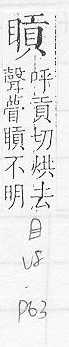 呼貢切烘去
聲瞢不明
目
V8
P63